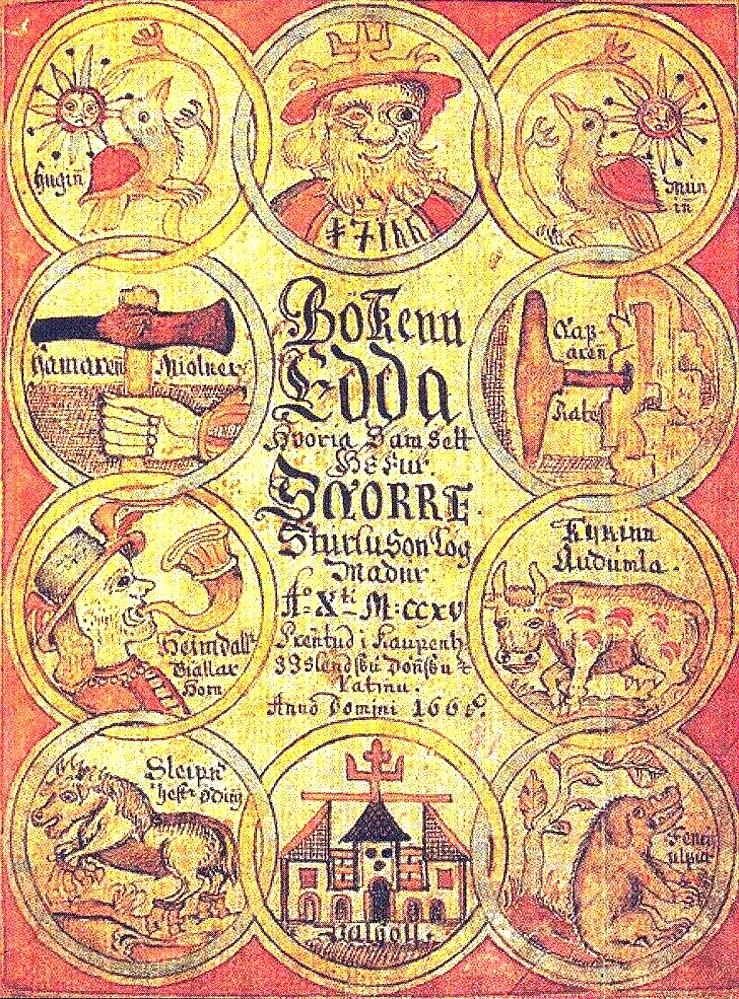 Hugin
Mun
in
Hamaren Miolner
Bökenn
Edda
Hvoria Samsett
Hefur
SNORRE
Sturluson Log
Madur.
A° Xti M:ccxv
Prentud i Kaupenh
Islendsku Donsku
Latinu.
Anno Domini 166
Heimdall
Giallar
Horn
Kyrinn
Audumla.
Sleipn
hestr odins
Valholl.